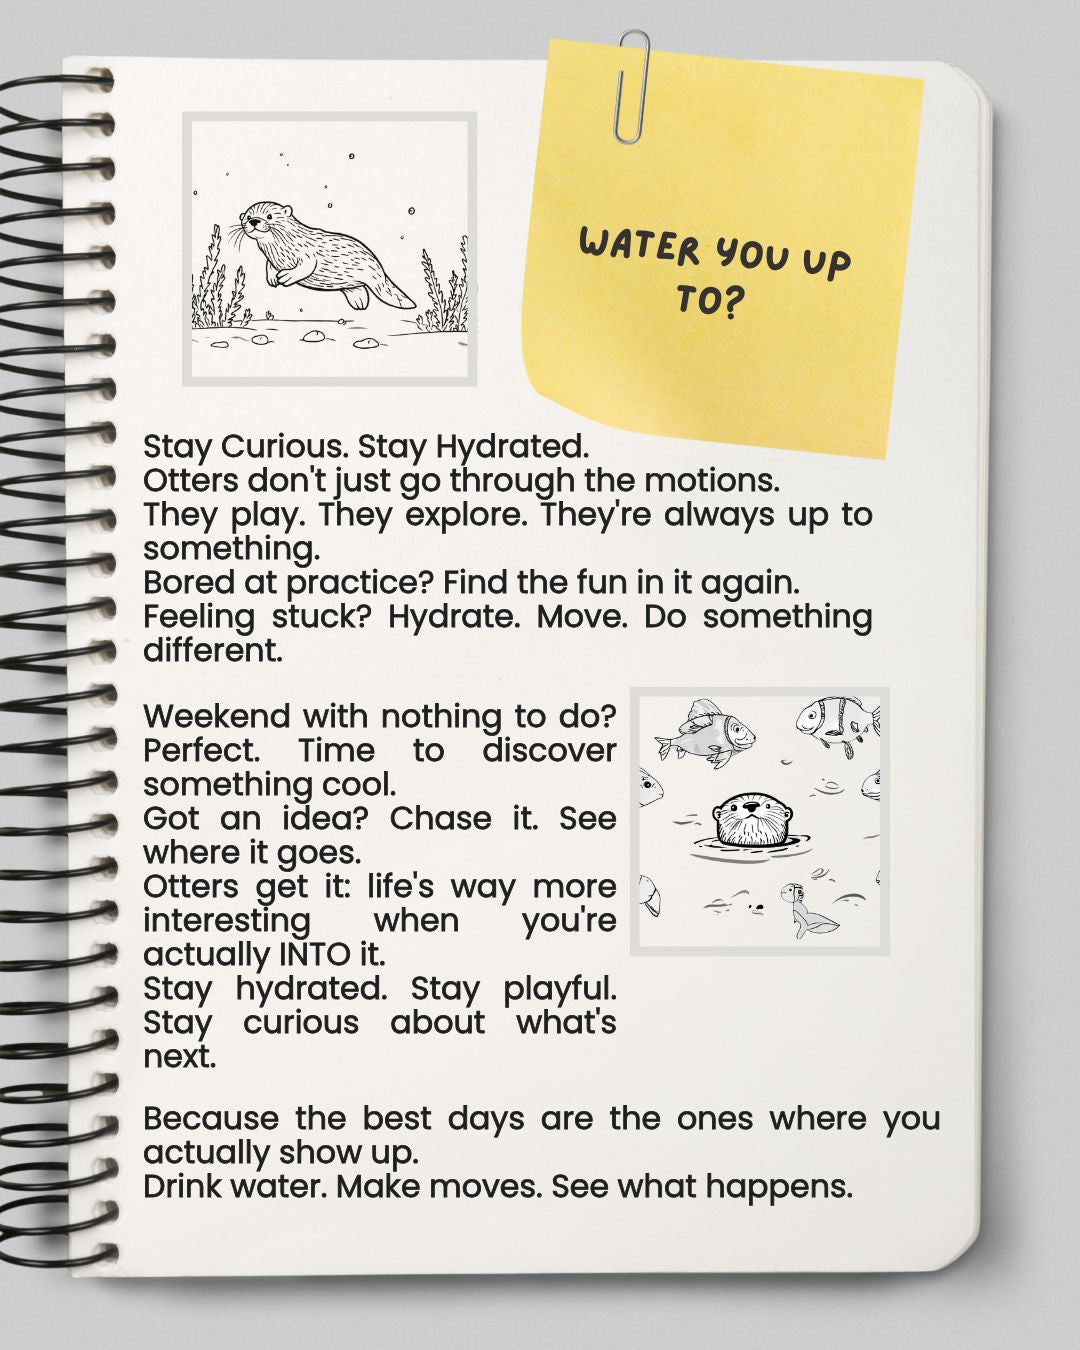 WATER YOU UP
TO?
Stay Curious. Stay Hydrated.
Otters don't just go through the motions.
They play. They explore. They're always up to
something.
Bored at practice? Find the fun in it again.
Feeling stuck? Hydrate. Move. Do something
different.
Weekend with nothing to do?
Perfect. Time to discover
something cool.
Got an idea? Chase it. See
where it goes.
Otters get it: life's way more
interesting when you're
actually INTO it.
Stay hydrated. Stay playful.
Stay curious about what's
next.
Because the best days are the ones where you
actually show up.
Drink water. Make moves. See what happens.